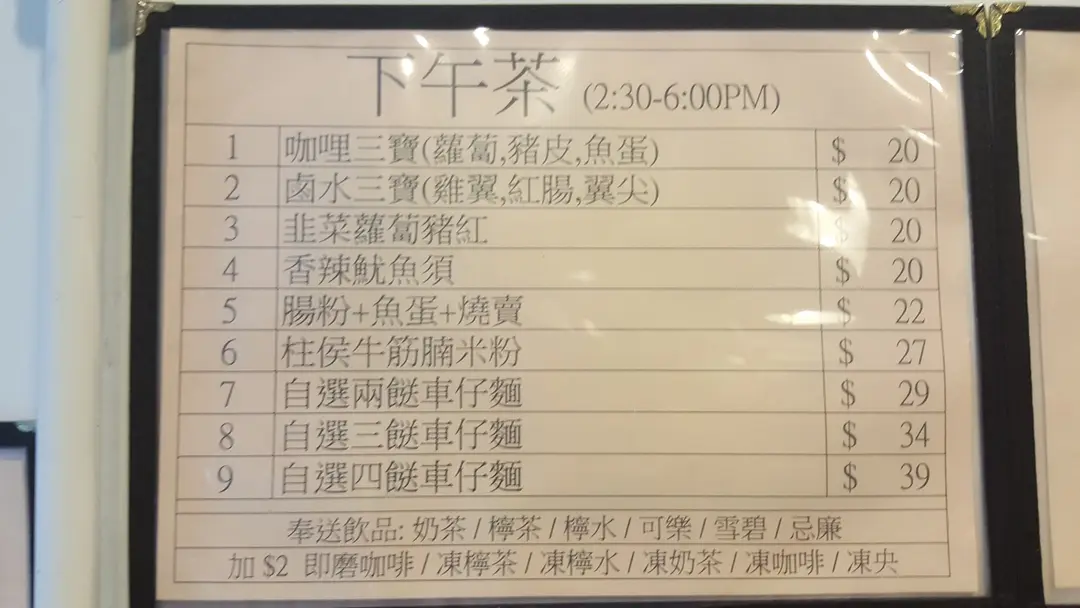 下午茶 (2:30-6:00PM)
1 咖哩三寶(蘿蔔,豬皮,魚蛋) $ 20
2 鹵水三寶(雞翼,紅腸,翼尖) $ 20
3 韭菜蘿蔔豬紅 $ 20
4 香辣魷魚須 $ 20
5 腸粉+魚蛋+燒賣 $ 22
6 柱侯牛筋腩米粉 $ 27
7 自選兩餸車仔麵 $ 29
8 自選三餸車仔麵 $ 34
9 自選四餸車仔麵 $ 39
奉送飲品: 奶茶 / 檸茶 / 檸水 / 可樂 / 雪碧 / 忌廉
加 $2 即磨咖啡 / 凍檸茶 / 凍檸水 / 凍奶茶 / 凍咖啡 / 凍央